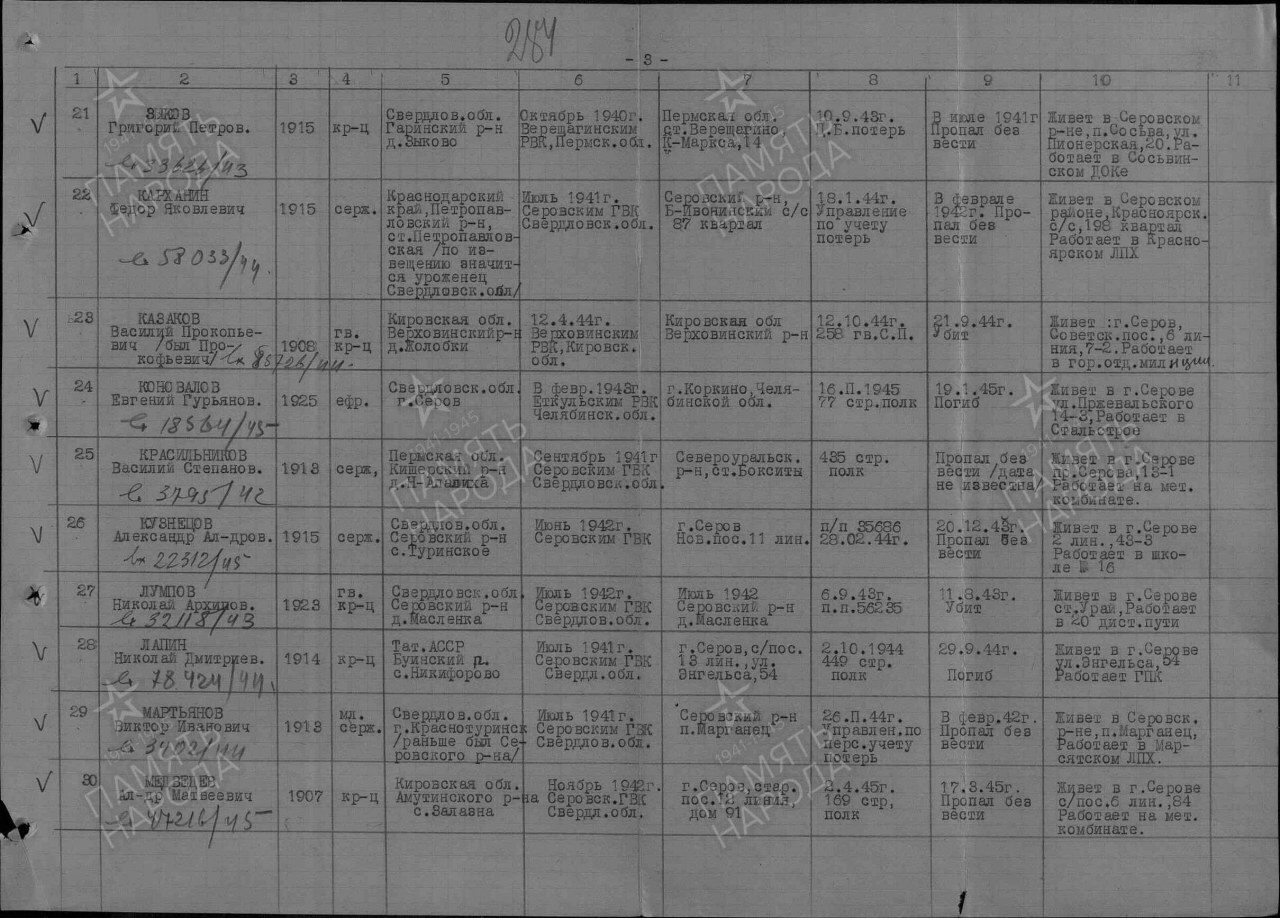 284
- 3 -
1 2 3 4 5 6 7 8 9 10 11
21
ЗЫКОВ
Григорий Петров.
вх 33626/43
1915
кр-ц
Свердлов.обл.
Гаринский р-н
д.Зыково
Октябрь 1940г.
Верещагинским
РВК,Пермск.обл.
Пермская обл.
ст.Верещагино,
К-Маркса,14
10.9.43г.
Ц.Б.потерь
В июле 1941г
Пропал без
вести
Живет в Серовском
р-не,п.Сосьва,ул.
Пионерская,20.Ра-
ботает в Сосьвин-
ском ДОКе
22
КАРХАНИН
Федор Яковлевич
вх 58033/44
1915
серж.
Краснодарский
край,Петропав-
ловский р-н,
ст.Петропавлов-
ская /по из-
вещению значит-
ся уроженец
Свердловск.обл/
Июль 1941г.
Серовским ГВК
Свердловск.обл.
Серовский р-н,
Б-Ивонинский с/с
87 квартал
18.1.44г.
Управление
по учету
потерь
В феврале
1942г. Про-
пал без
вести
Живет в Серовском
районе,Красноярск.
с/с,198 квартал
Работает в Красно-
ярском ЛПХ
23
КАЗАКОВ
Василий Прокопье-
вич /был Про-
кофьевич/ вх 85726/44.
1908
гв.
кр-ц
Кировская обл.
Верховинскийр-н
д.Жолобки
12.4.44г.
Верховинским
РВК,Кировск.
обл.
Кировская обл
Верховинский р-н
12.10.44г.
258 гв.С.П.
21.9.44г.
Убит
Живет :г.Серов,
Советск.пос.,6 ли-
ния,7-2.Работает
в гор.отд.милиции.
24
КОНОВАЛОВ
Евгений Гурьянов.
вх 18564/45
1925
ефр.
Свердловск.обл.
г.Серов
В февр.1943г.
Еткульским РВК
Челябинск.обл.
г.Коркино,Челя-
бинской обл.
16.П.1945
77 стр.полк
19.1.45г.
Погиб
Живет в г.Серове
ул.Пржевальского
14-3,Работает в
Стальстрое
25
КРАСИЛЬНИКОВ
Василий Степанов.
вх 3795/42
1913
серж,
Пермская обл.
Кишерский р-н
д.Н-Апалиха
Сентябрь 1941г
Серовским ГВК
Свердловск.обл.
Североуральск.
р-н,ст.Бокситы
435 стр.
полк
Пропал без
вести /дата
не известна/
Живет в г.Серове
пр.Серова,13-1
Работает на мет.
комбинате.
26
КУЗНЕЦОВ
Александр Ал-дров.
вх 22312/45
1915
серж.
Свердлов.обл.
Серовский р-н
с.Туринское
Июнь 1942г.
Серовским ГВК
г.Серов
Нов.пос.11 лин.
п/п 35686
28.02.44г.
20.12.43г.
Пропал без
вести
Живет в г.Серове
2 лин.,43-3
Работает в шко-
ле № 16
27
ЛУМПОВ
Николай Архипов.
вх 32118/43
1923
гв.
кр-ц
Свердловск.обл.
Серовский р-н
д.Масленка
Июль 1942г.
Серовским ГВК
Свердлов.обл.
Июль 1942
Серовский р-н
д.Масленка
6.9.43г.
п.п.56235
11.8.43г.
Убит
Живет в г.Серове
ст.Урай,Работает
в 20 дист.пути
28
ЛАПИН
Николай Дмитриев.
вх 78424/44.
1914
кр-ц
Тат.АССР
Буинский р.
с.Никифорово
Июль 1941г.
Серовским ГВК
Свердл.обл.
г.Серов,с/пос.
13 лин.,ул.
Энгельса,54
2.10.1944
449 стр.
полк
29.9.44г.
Погиб
Живет в г.Серове
ул.Энгельса,54
Работает ГПК
29
МАРТЬЯНОВ
Виктор Иванович
вх 3402/44
1913
мл.
серж.
Свердлов.обл.
г.Краснотуринск
/раньше был Се-
ровского р-на/
Июль 1941г.
Серовским ГВК
Свердлов.обл.
Серовский р-н
п.Марганец
26.П.44г.
Управлен.по
перс.учету
потерь
В февр.42г.
Пропал без
вести
Живет в Серовск.
р-не,п.Марганец,
Работает в Мар-
сятском ЛПХ.
30
МЕДВЕДЕВ
Ал-др Матвеевич
вх 47216/45
1907
кр-ц
Кировская обл.
Амутинского р-на
с.Залазна
Ноябрь 1942г.
Серовск.ГВК
Свердл.обл.
г.Серов,стар.
пос.12 линия,
дом 91
2.4.45г.
169 стр,
полк
17.3.45г.
Пропал без
вести
Живет в г.Серове
с/пос.6 лин.,84
Работает на мет.
комбинате.
ПАМЯТЬ НАРОДА
1941-1945